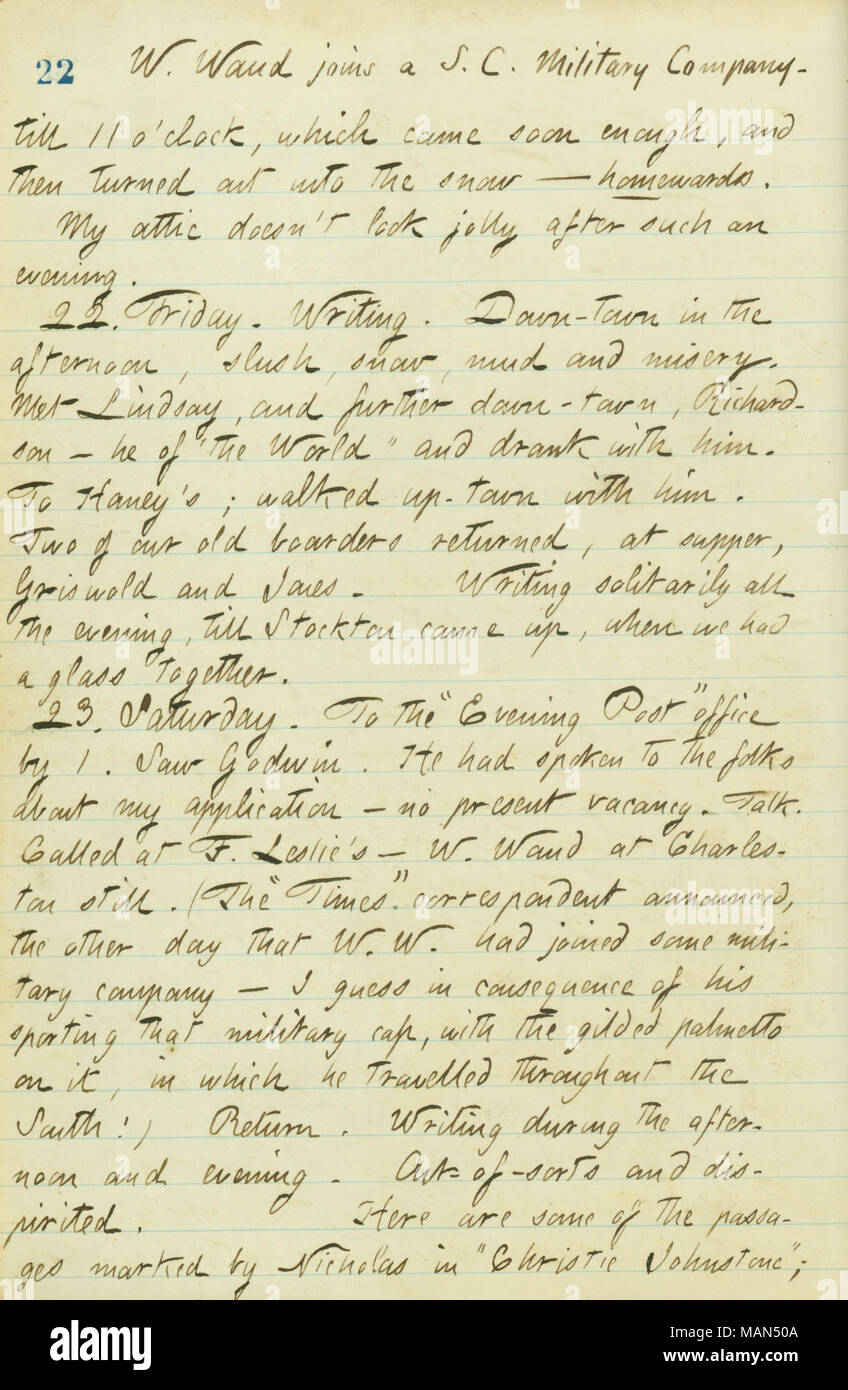 22 W. Waud joins a S. C. Military Company-
till 11 o'clock, which came soon enough, and
then turned out into the snow — homewards.
My attic doesn't look jolly after such an
evening.
22. Friday. Writing. Down-town in the
afternoon, slush, snow, mud and misery.
Met Lindsay, and further down-town, Richard-
son — he of "the World" and drank with him.
To Haney's; walked up-town with him.
Two of our old boarders returned, at supper,
Griswold and Jones. Writing solitarily all
the evening, till Stockton came up, when we had
a glass together.
23. Saturday. To the "Evening Post" office
by 1. Saw Godwin. He had spoken to the folks
about my application — no present vacancy. Talk.
Called at F. Leslie's — W. Waud at Charles-
ton still. (The "Times" correspondent announced,
the other day that W. W. had joined some mili-
tary company — I guess in consequence of his
sporting that military cap, with the gilded palmetto
on it, in which he travelled throughout the
South!) Return. Writing during the after-
noon and evening. Out-of-sorts and dis-
pirited. Here are some of the passa-
ges marked by Nicholas in "Christie Johnstone";
alamy
Image ID: MAN50A
www.alamy.com